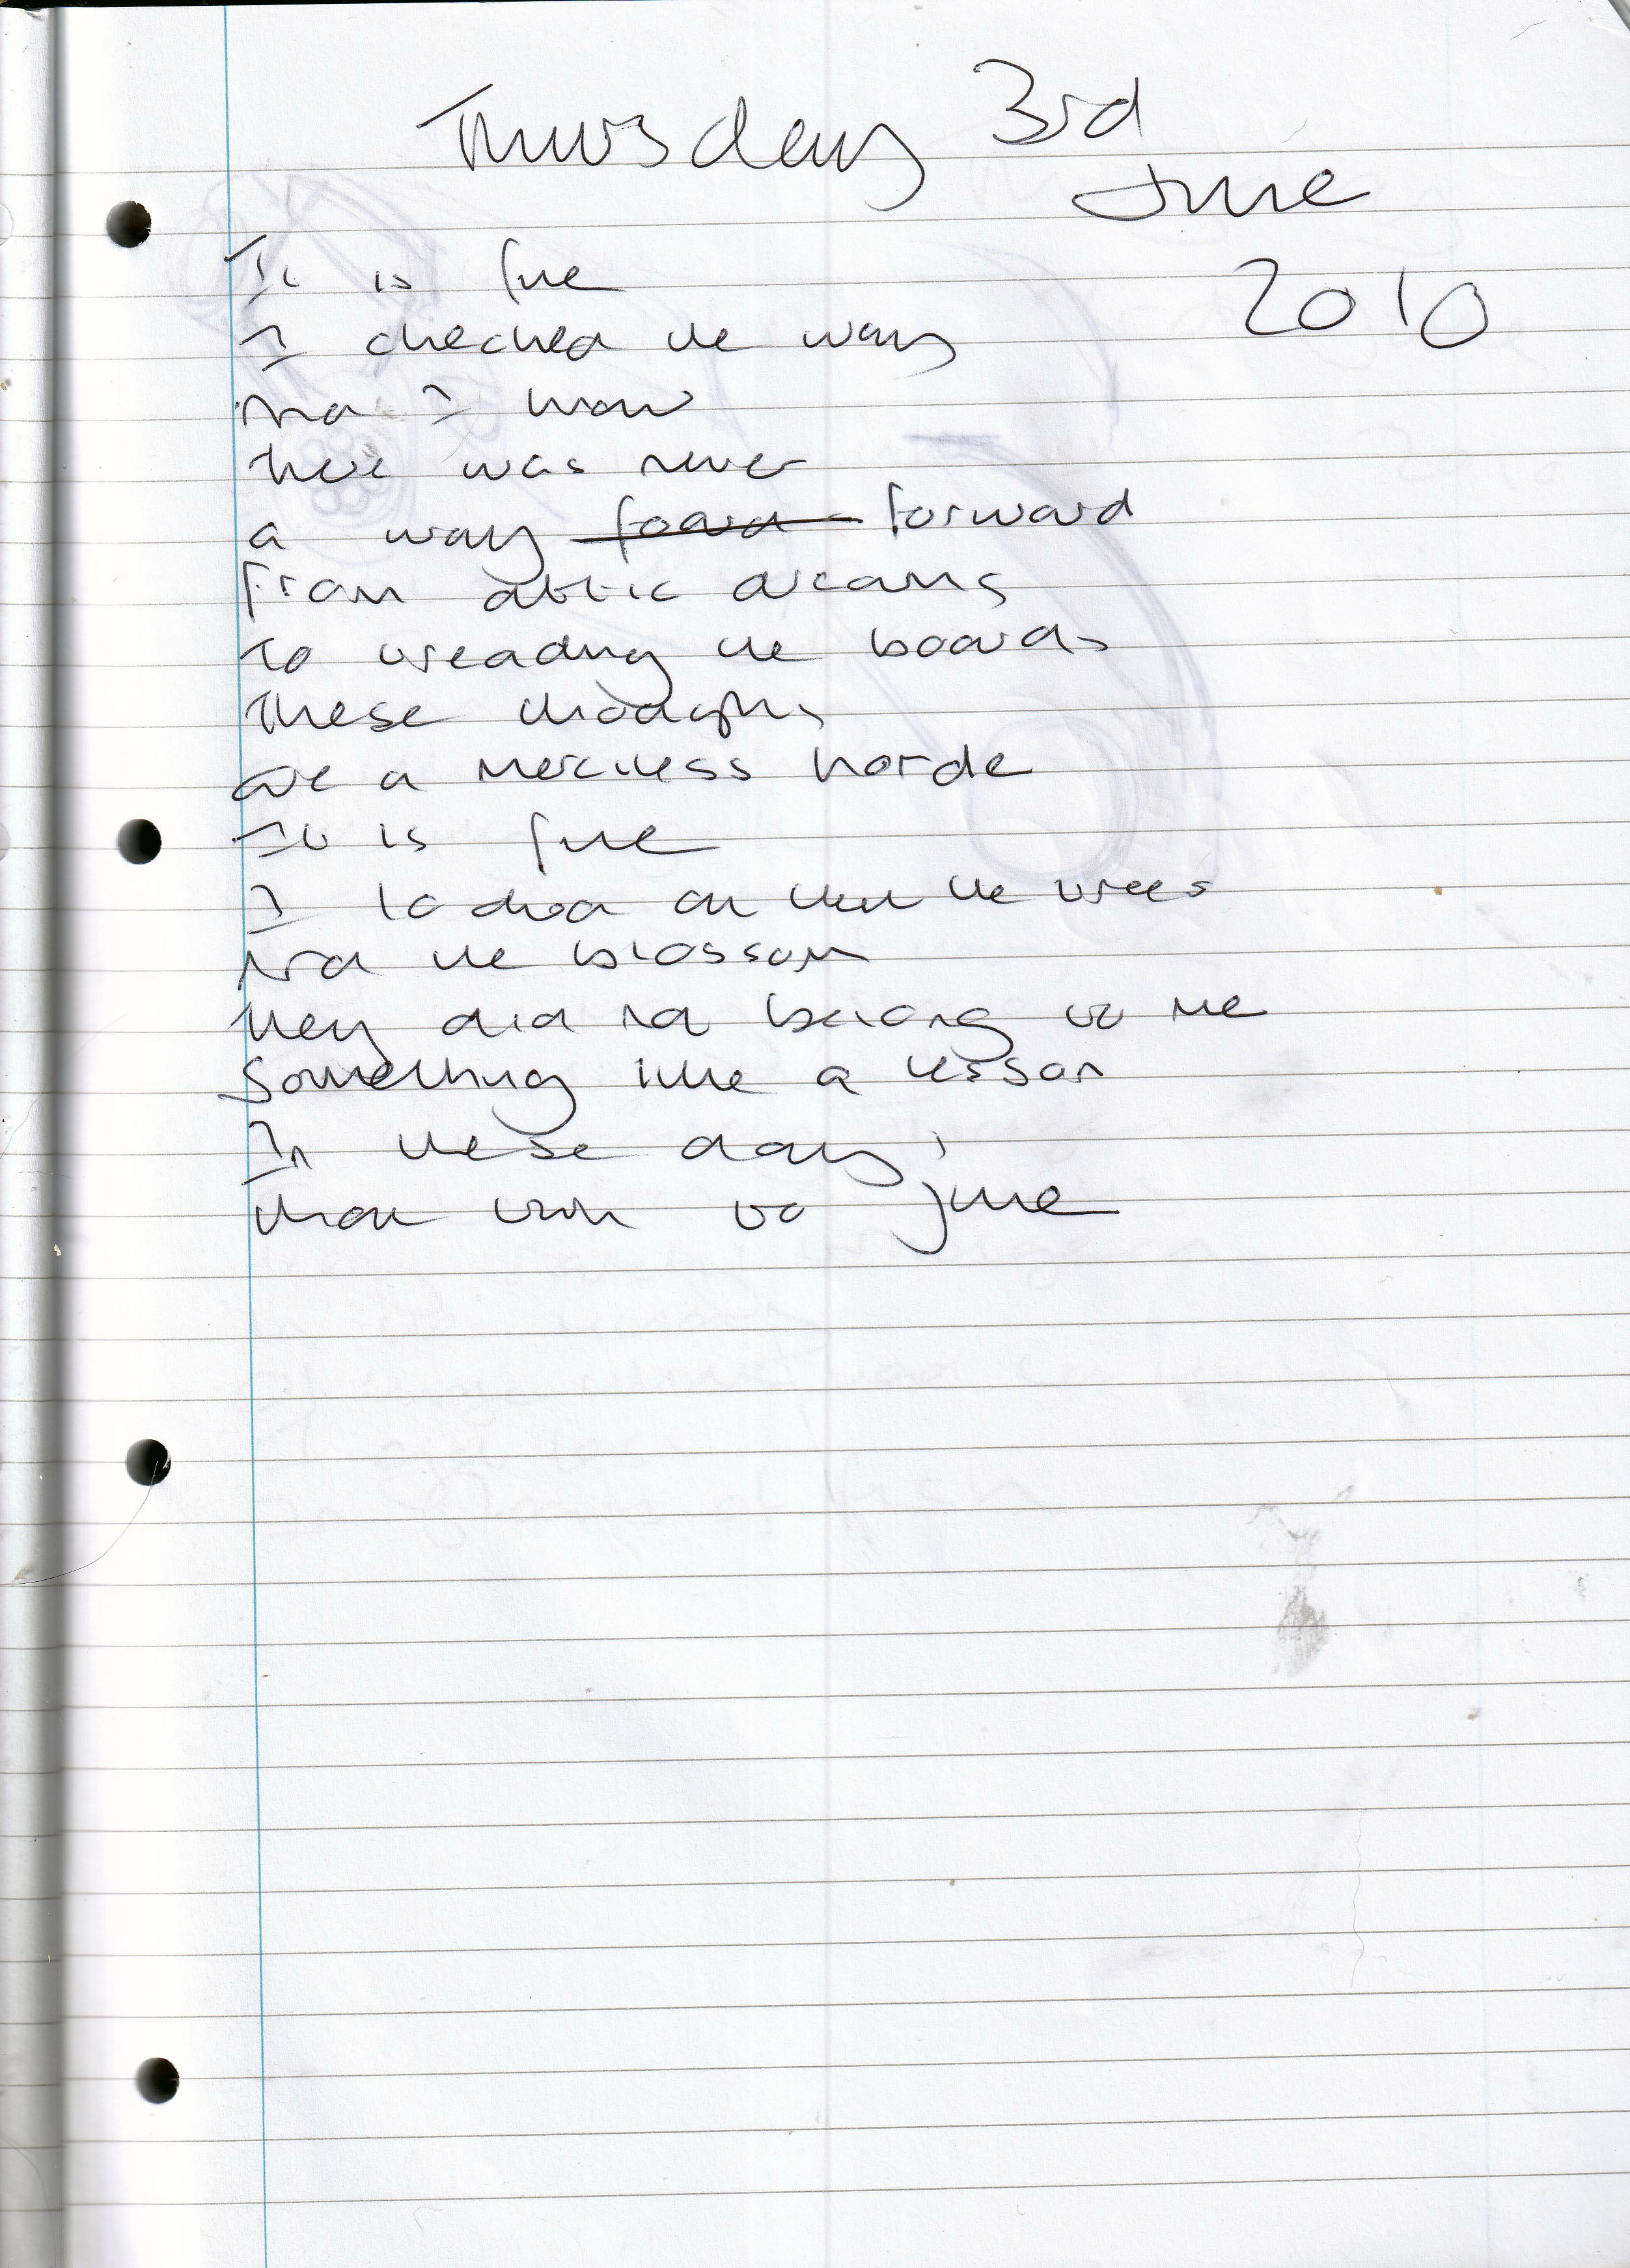 Thursday 3rd
June
2010
It is fine
I checked the way
And I know
there was never
a way foard forward
From attic dreams
To treading the boards
These thoughts
are a merciless horde
It is fine
I looked on then the trees
And the blossom
they did not belong to me
Something like a lesson
In these days,
that turn to june